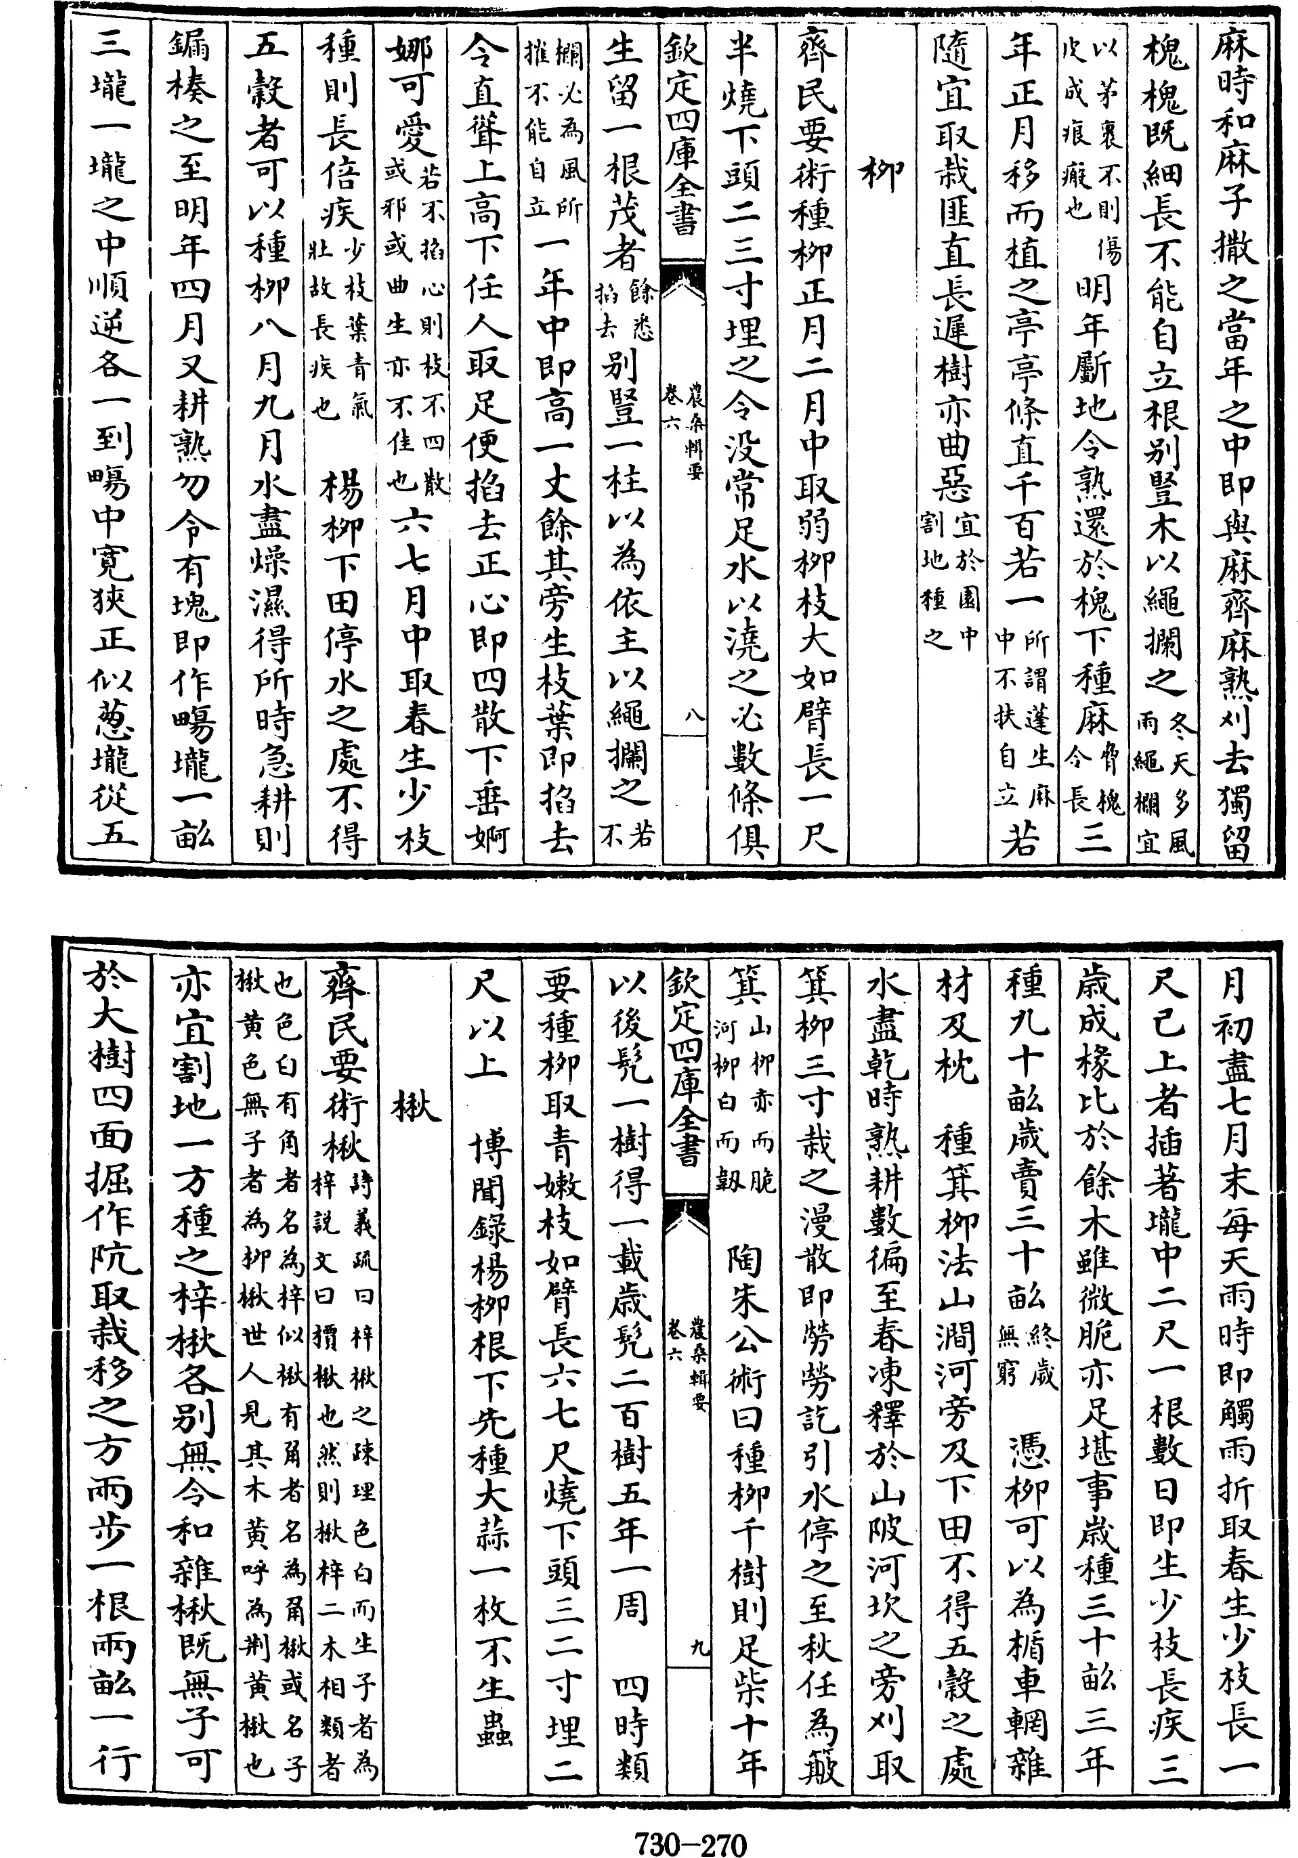 麻時和麻子撒之當年之中即與麻齊麻熟刈去獨留
槐槐既細長不能自立根别豎木以繩攔之冬天多風雨繩欄宜
以茅裹不則傷皮成痕瘢也明年斸地令熟還於槐下種麻脅槐令長三
年正月移而植之亭亭條直千百若一所謂蓬生麻中不扶自立若
隨宜取栽匪直長遲樹亦曲惡宜於園中割地種之
柳
齊民要術種柳正月二月中取弱柳枝大如臂長一尺
半燒下頭二三寸埋之令没常足水以澆之必數條俱
欽定四庫全書 農桑輯要 卷六 八
生留一根茂者餘悉掐去别豎一柱以為依主以繩攔之若不
欄必為風所摧不能自立一年中即高一丈餘其旁生枝葉即掐去
令直聳上高下任人取足便掐去正心即四散下垂婀
娜可愛若不掐心則枝不四散或邪或曲生亦不佳也六七月中取春生少枝
種則長倍疾少枝葉青氣壯故長疾也 楊柳下田停水之處不得
五穀者可以種柳八月九月水盡燥濕得所時急耕則
鍽榛之至明年四月又耕熟勿令有塊即作㽪壠一畝
三壠一壠之中順逆各一到㽪中寛狹正似葱壠從五
月初盡七月末每天雨時即觸雨折取春生少枝長一
尺已上者插著壠中二尺一根數日即生少枝長疾三
歲成椽比於餘木雖微脆亦足堪事歲種三十畝三年
種九十畝歲賣三十畝終歲無窮 憑柳可以為楯車輞雜
材及枕 種箕柳法山澗河旁及下田不得五穀之處
水盡乾時熟耕數徧至春凍釋於山陂河坎之旁刈取
箕柳三寸栽之漫散即勞勞訖引水停之至秋任為簸
箕山柳赤而脆河柳白而韌 陶朱公術曰種柳千樹則足柴十年
欽定四庫全書 農桑輯要 卷六 九
以後髠一樹得一載歲髠二百樹五年一周 四時類
要種柳取青嫩枝如臂長六七尺燒下頭三二寸埋二
尺以上 博聞錄楊柳根下先種大蒜一枚不生蟲
楸
齊民要術楸詩義疏曰梓楸之疎理色白而生子者為梓説文曰檟楸也然則楸梓二木相類者
也色白有角者名為梓似楸有角者名為角楸或名子楸黃色無子者為柳楸世人見其木黄呼為荆黄楸也
亦宜割地一方種之梓楸各别無令和雜楸既無子可
於大樹四面掘作阬取栽移之方兩步一根兩畝一行
730-270